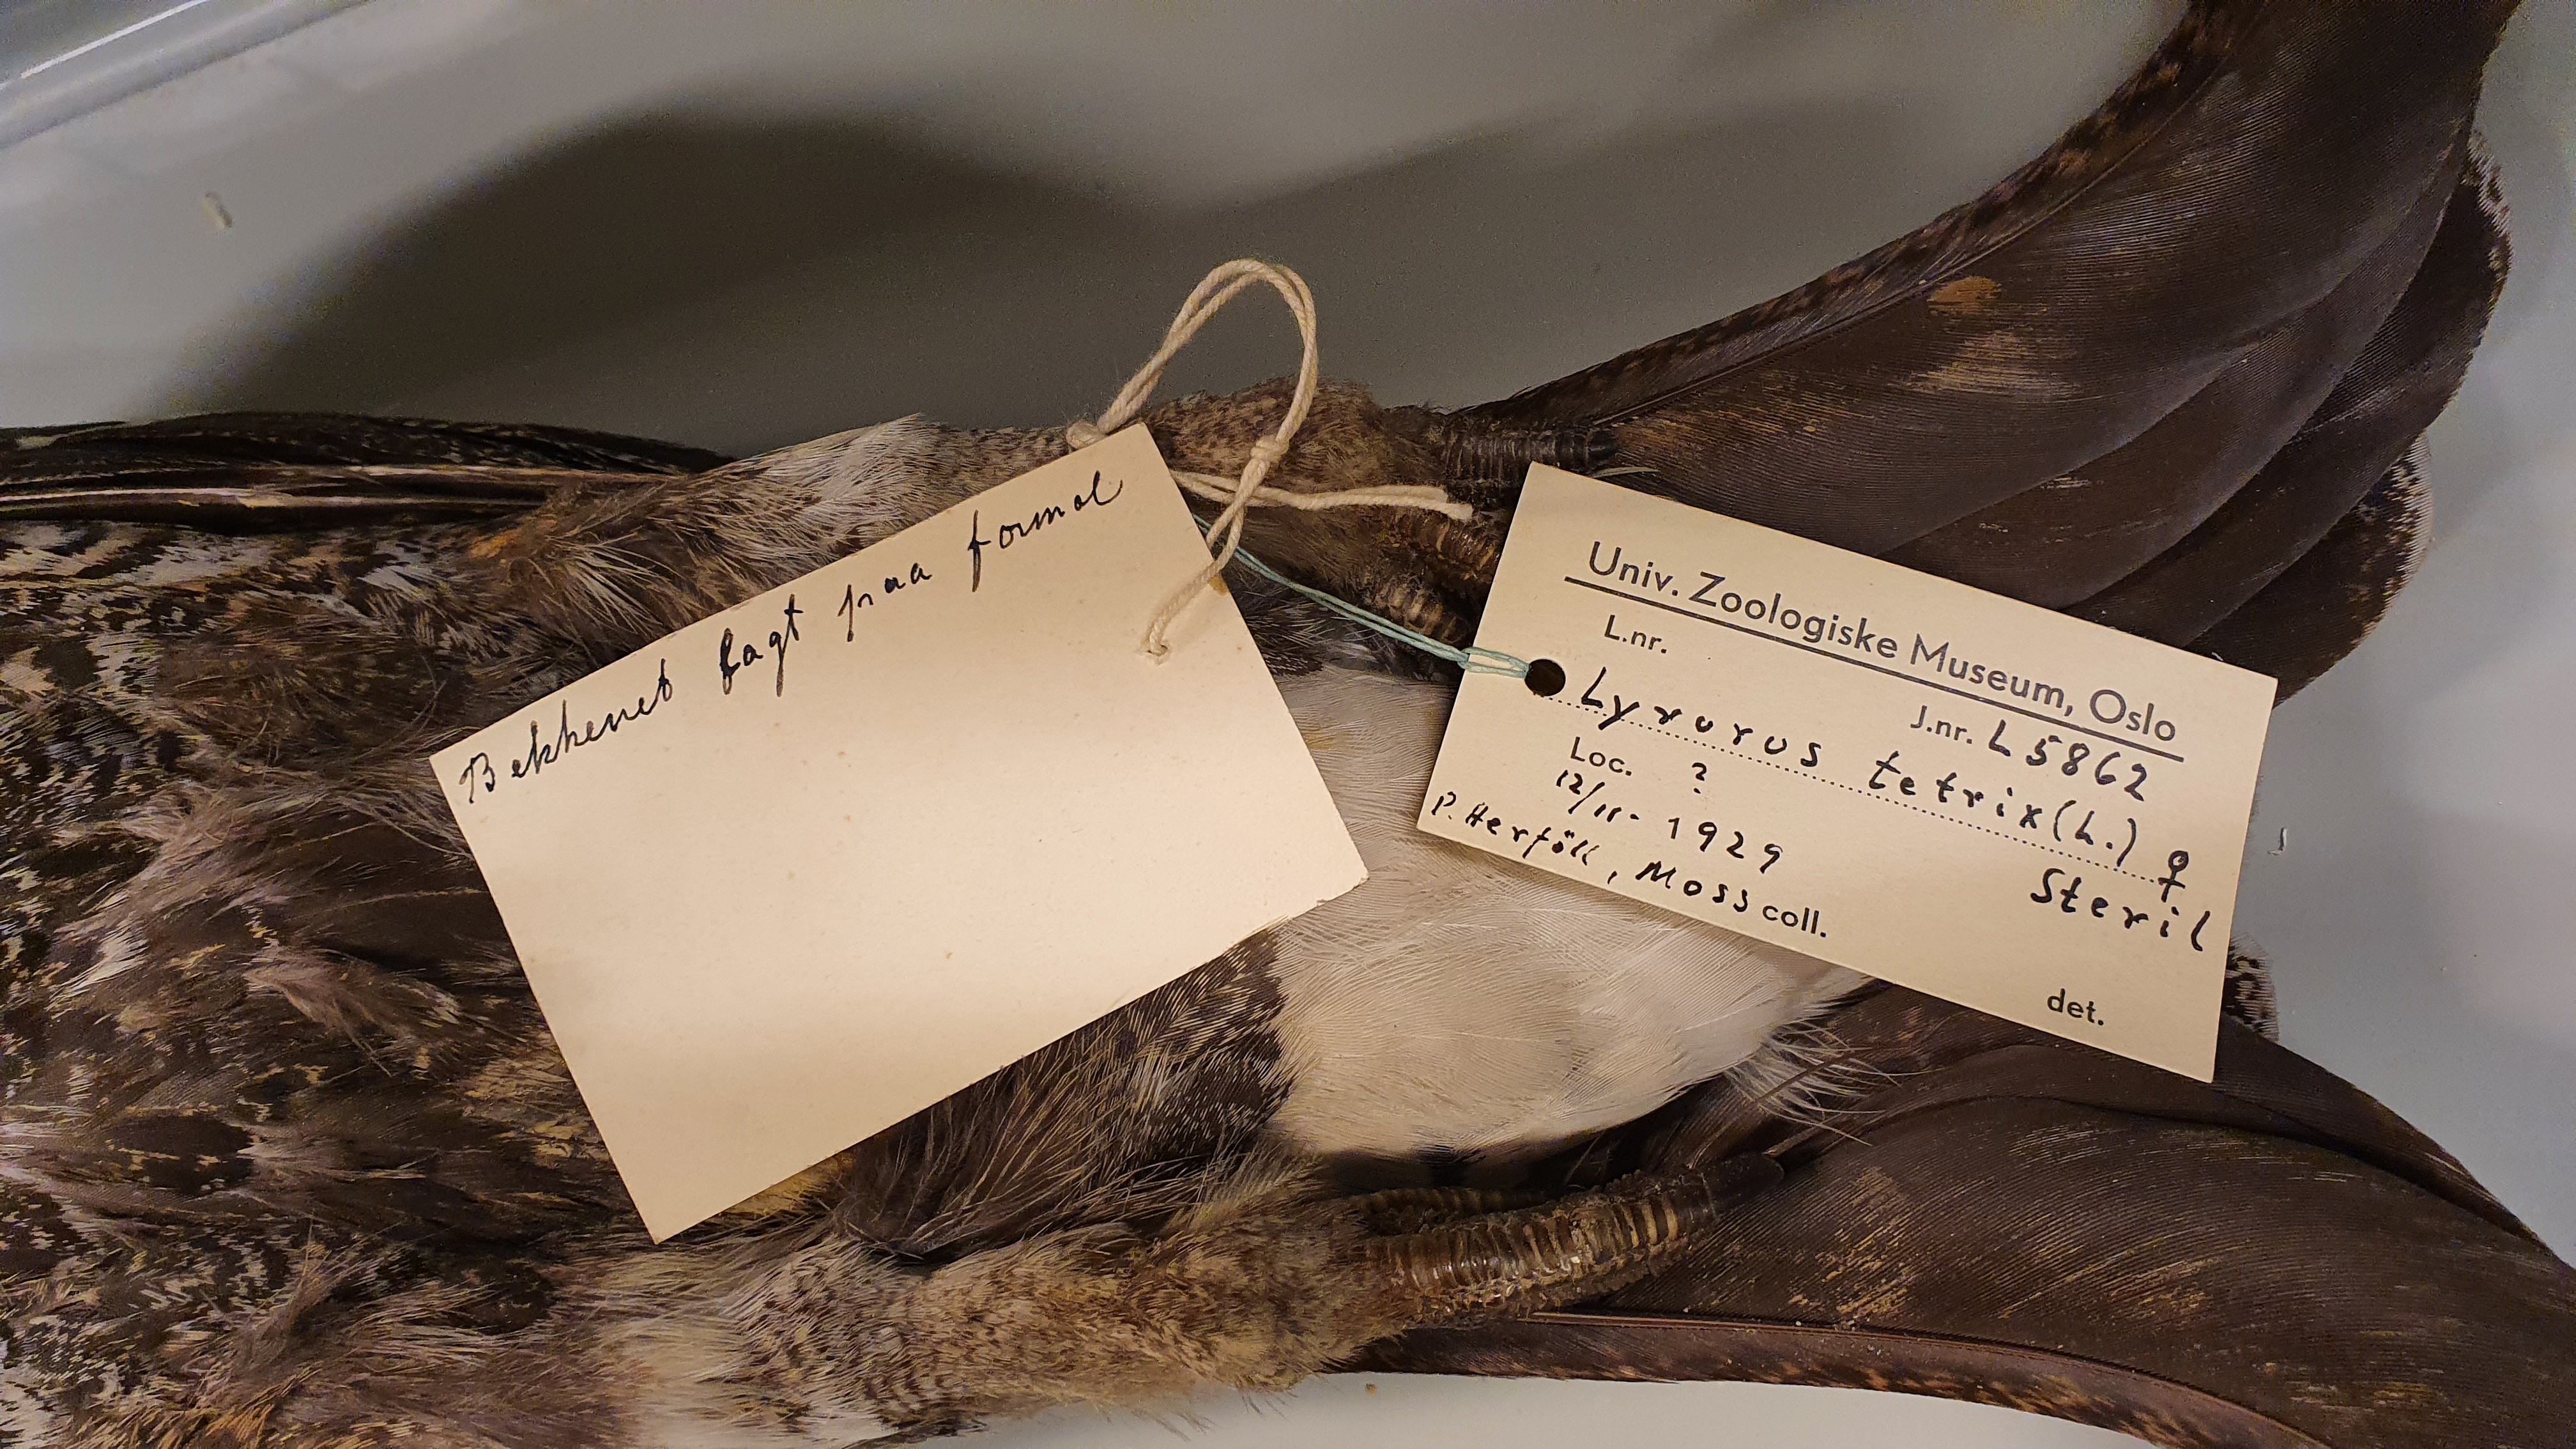 Bekkenet lagt paa formol
Univ. Zoologiske Museum, Oslo
L.nr. J.nr. L 5862
Lyrurus tetrix (L.) ♀
Loc. ? Steril
12/11- 1929
P. Herföll, Moss coll.
det.